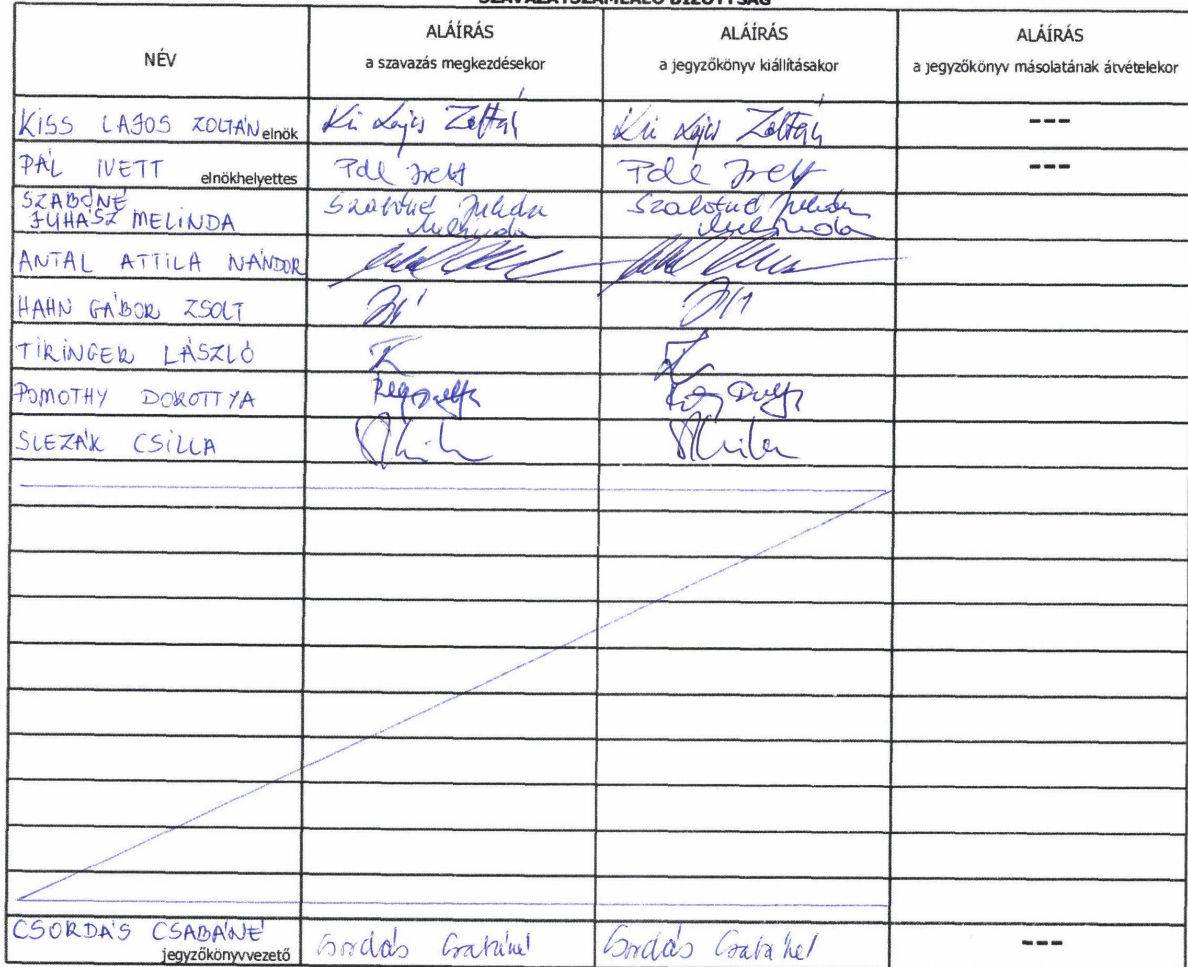 SZAVAZATSZÁMLÁLÓ BIZOTTSÁG
NÉV
ALÁÍRÁS
a szavazás megkezdésekor
ALÁÍRÁS
a jegyzőkönyv kiállításakor
ALÁÍRÁS
a jegyzőkönyv másolatának átvételekor
KISS LAJOS ZOLTÁN elnök Kis Lajos Zoltán Kis Lajos Zoltán ---
PÁL IVETT elnökhelyettes Pál Ivett Pál Ivett ---
SZABÓNÉ
JUHÁSZ MELINDA
Szabóné Juhász
Melinda
Szabóné Juhász
Melinda
ANTAL ATTILA NÁNDOR
HAHN GÁBOR ZSOLT
TIRINGER LÁSZLÓ
POMOTHY DOROTTYA
SLEZÁK CSILLA
CSORDÁS CSABÁNÉ
jegyzőkönyvvezető
Csordás Csabáné Csordás Csabáné ---